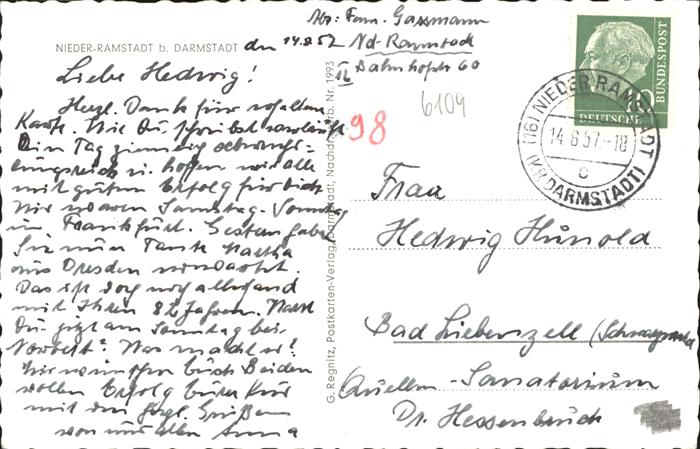 Abs: Fam. Gassmann
NIEDER-RAMSTADT b. DARMSTADT den 14.8.57 Nd-Ramstadt
Bahnhofstr 60
Liebe Hedwig!
Herzl. Dank für erhaltene
Karte. Wie Du schreibst verläuft
Dein Tag ziemlich abwechs-
lungsreich u. hoffen wir alle
mit gutem Erfolg für Dich
Wir waren Samstag-Sonntag
in Frankfurt. Gestern haben
Sie nun Tante Martha
aus Dresden
Das ist doch noch allerhand
mit Ihren 82 Jahren. Warst
Du jetzt am Sonntag bei
Norbert? Was macht er?
Wir wünschen Euch Beiden
vollen Erfolg Eurer Kur
mit den herzl. Grüßen
von uns allen Anna
G. Regnitz, Postkarten-Verlag, Darmstadt, Nachdr. verb. Nr. 1993
98
6109
DEUTSCHE BUNDESPOST
(16) NIEDER RAMSTADT
14.8.57.-18
c
(KR. DARMSTADT)
Frau
Hedwig Hunold
Bad Liebenzell (Schwarzwald
Quellen-Sanatorium
Dr. Hessenbruch